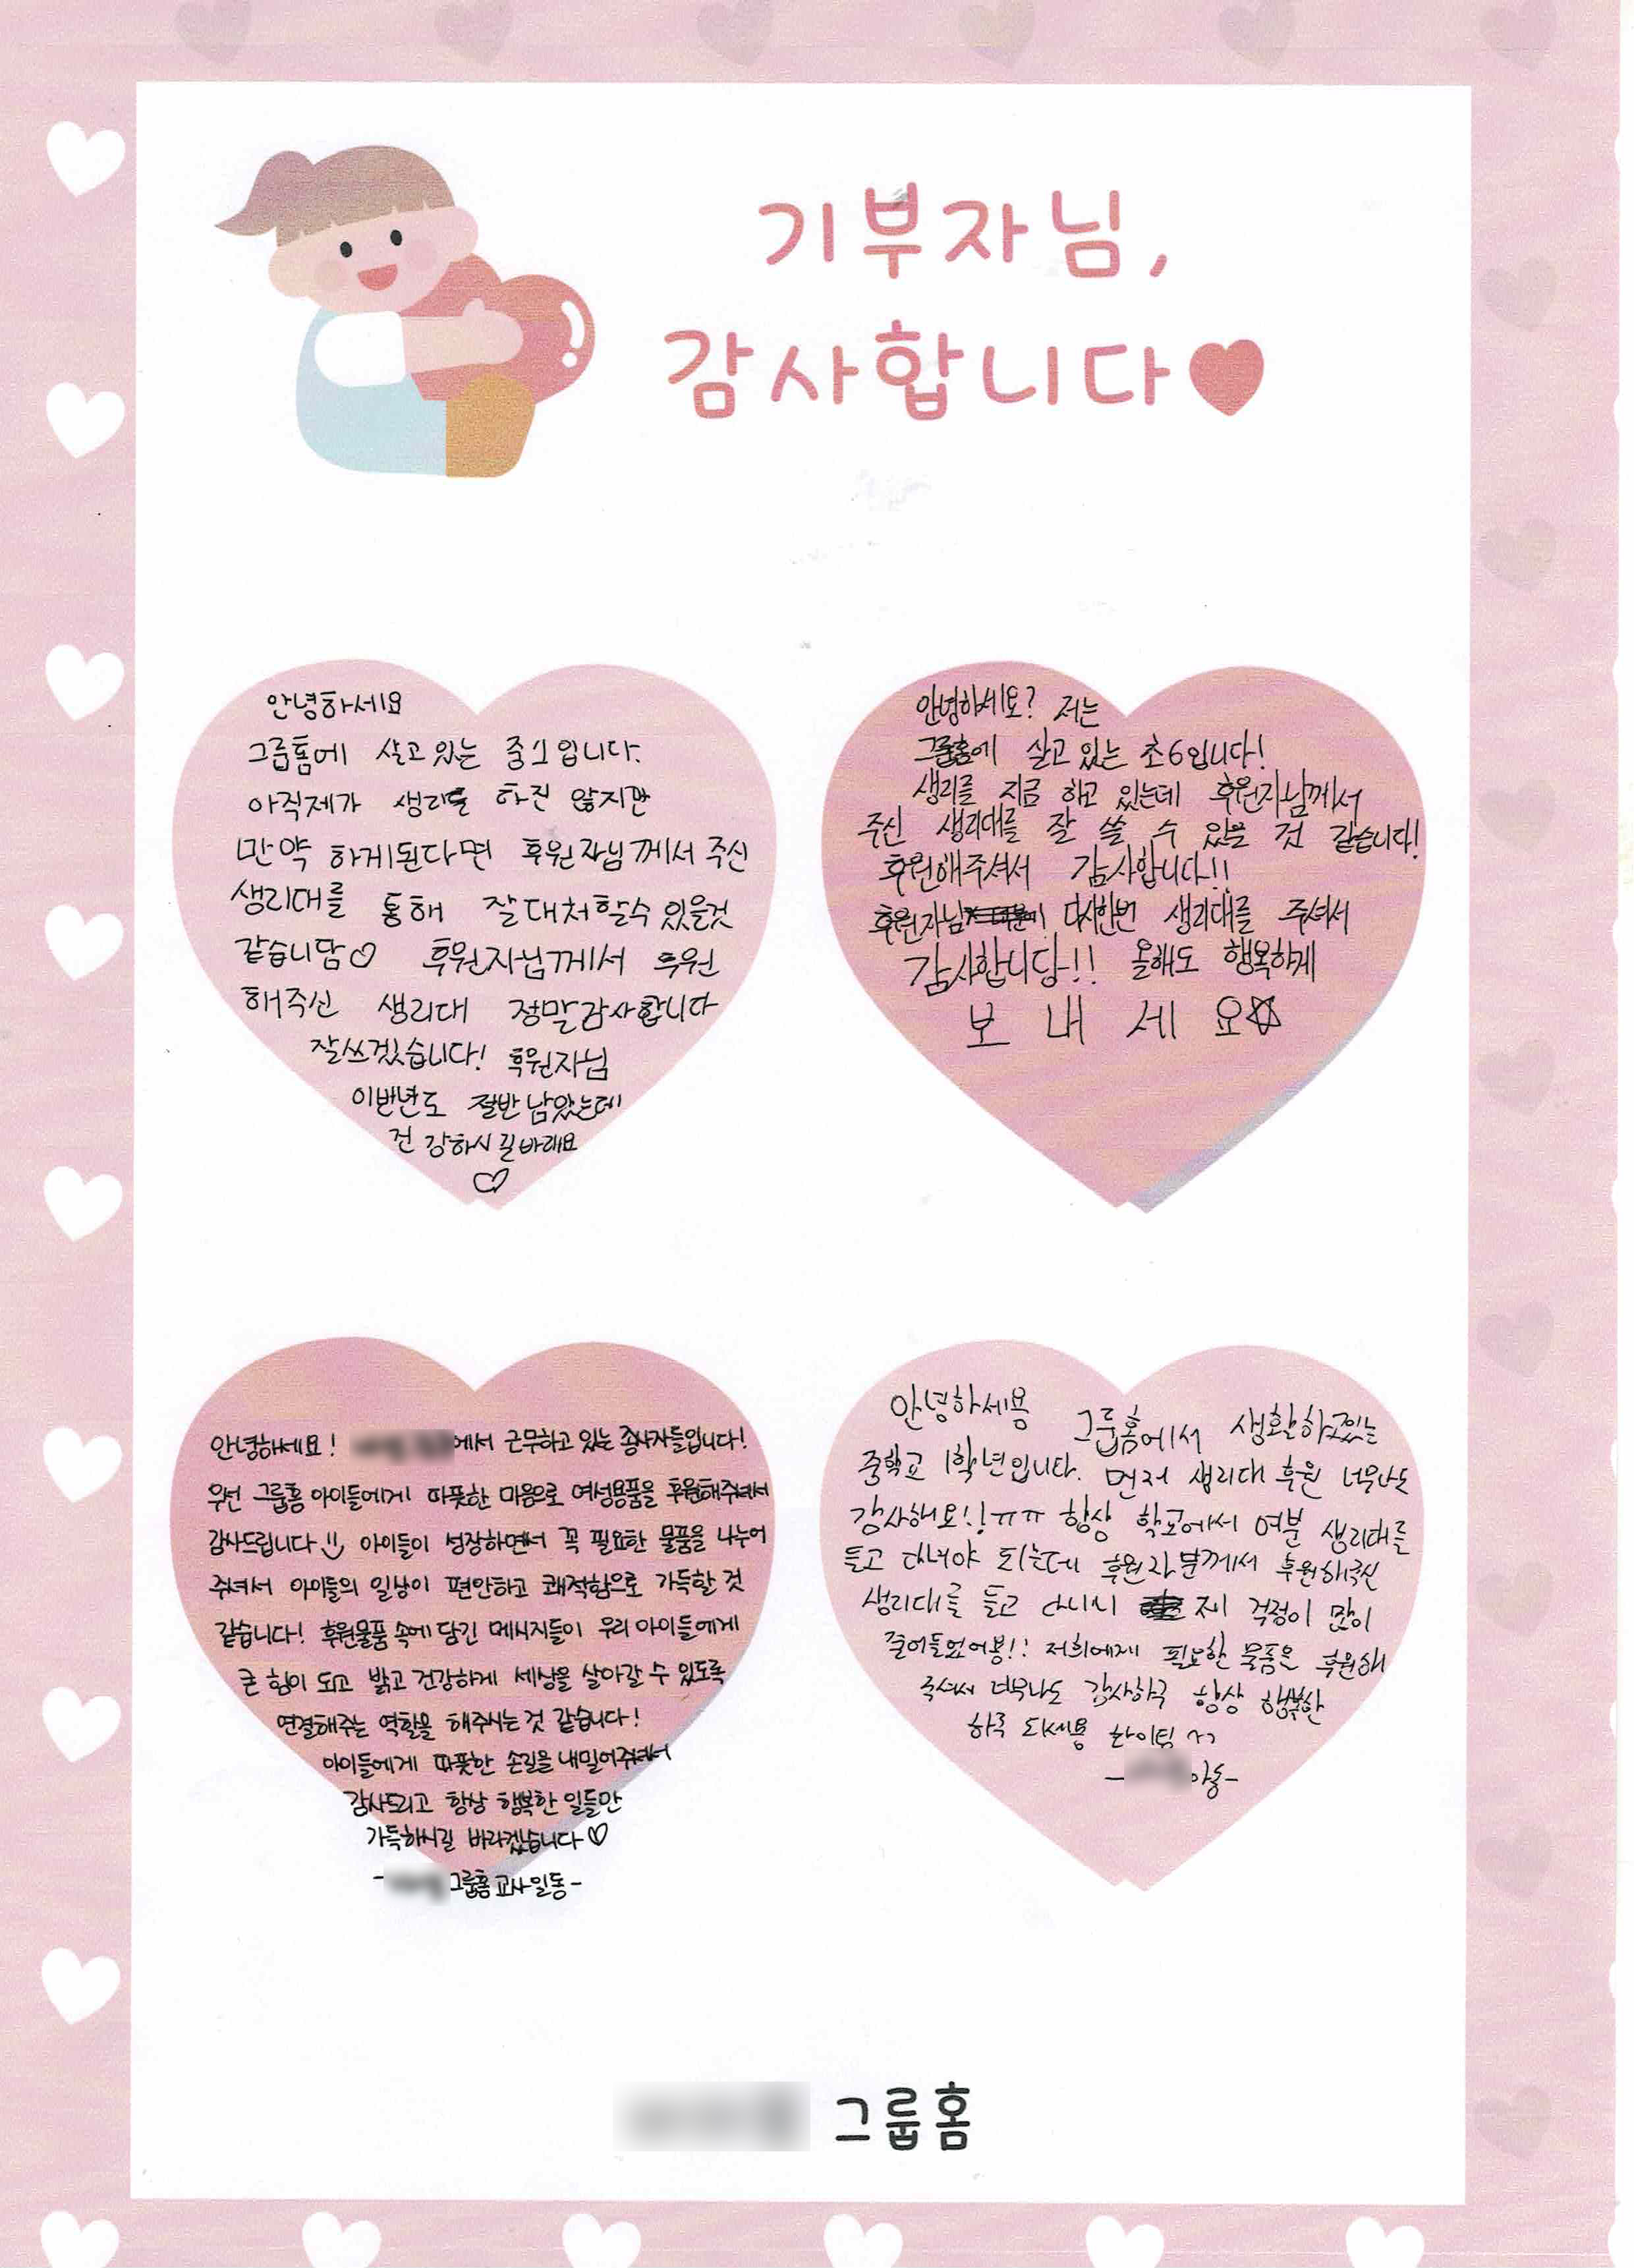 기부자님,
감사합니다♥
안녕하세요
그룹홈에 살고 있는 중1입니다.
아직제가 생리를 하진 않지만
만약 하게된다면 후원자님께서 주신
생리대를 통해 잘대처할수 있을것
같습니담♡ 후원자님께서 후원
해주신 생리대 정말감사합니다
잘쓰겠습니다! 후원자님
이번년도 절반 남았는데
건강하시길바래요
♡
안녕하세요? 저는
그룹홈에 살고 있는 초6입니다!
생리를 지금 하고 있는데 후원자님께서
주신 생리대를 잘 쓸 수 있을 것 같습니다!
후원해주셔서 감사합니다!!
후원자님 다시한번 생리대를 주셔서
감사합니당!! 올해도 행복하게
보내세요☆
안녕하세요! 에서 근무하고 있는 종사자들입니다!
우선 그룹홈 아이들에게 따뜻한 마음으로 여성용품을 후원해주셔서
감사드립니다 :) 아이들이 성장하면서 꼭 필요한 물품을 나누어
주셔서 아이들의 일상이 편안하고 쾌적함으로 가득할 것
같습니다! 후원물품 속에 담긴 메시지들이 우리 아이들에게
큰 힘이 되고 밝고 건강하게 세상을 살아갈 수 있도록
연결해주는 역할을 해주시는 것 같습니다!
아이들에게 따뜻한 손길을 내밀어주셔서
감사드리고 항상 행복한 일들만
가득하시길 바라겠습니다♡
- 그룹홈 교사일동-
안녕하세용 그룹홈에서 생활하고있는
중학교 1학년입니다. 먼저 생리대 후원 너무나도
감사해요!!ㅠㅠ 항상 학교에서 여분 생리대를
들고 다녀야 되는데 후원자분께서 후원해주신
생리대를 들고 다니니 제 걱정이 많이
줄어들었어용!! 저희에게 필요한 물품은 후원해
주셔서 너무나도 감사하구 항상 행복한
하루 되세용 화이팅 ^^
- 아동-
그룹홈